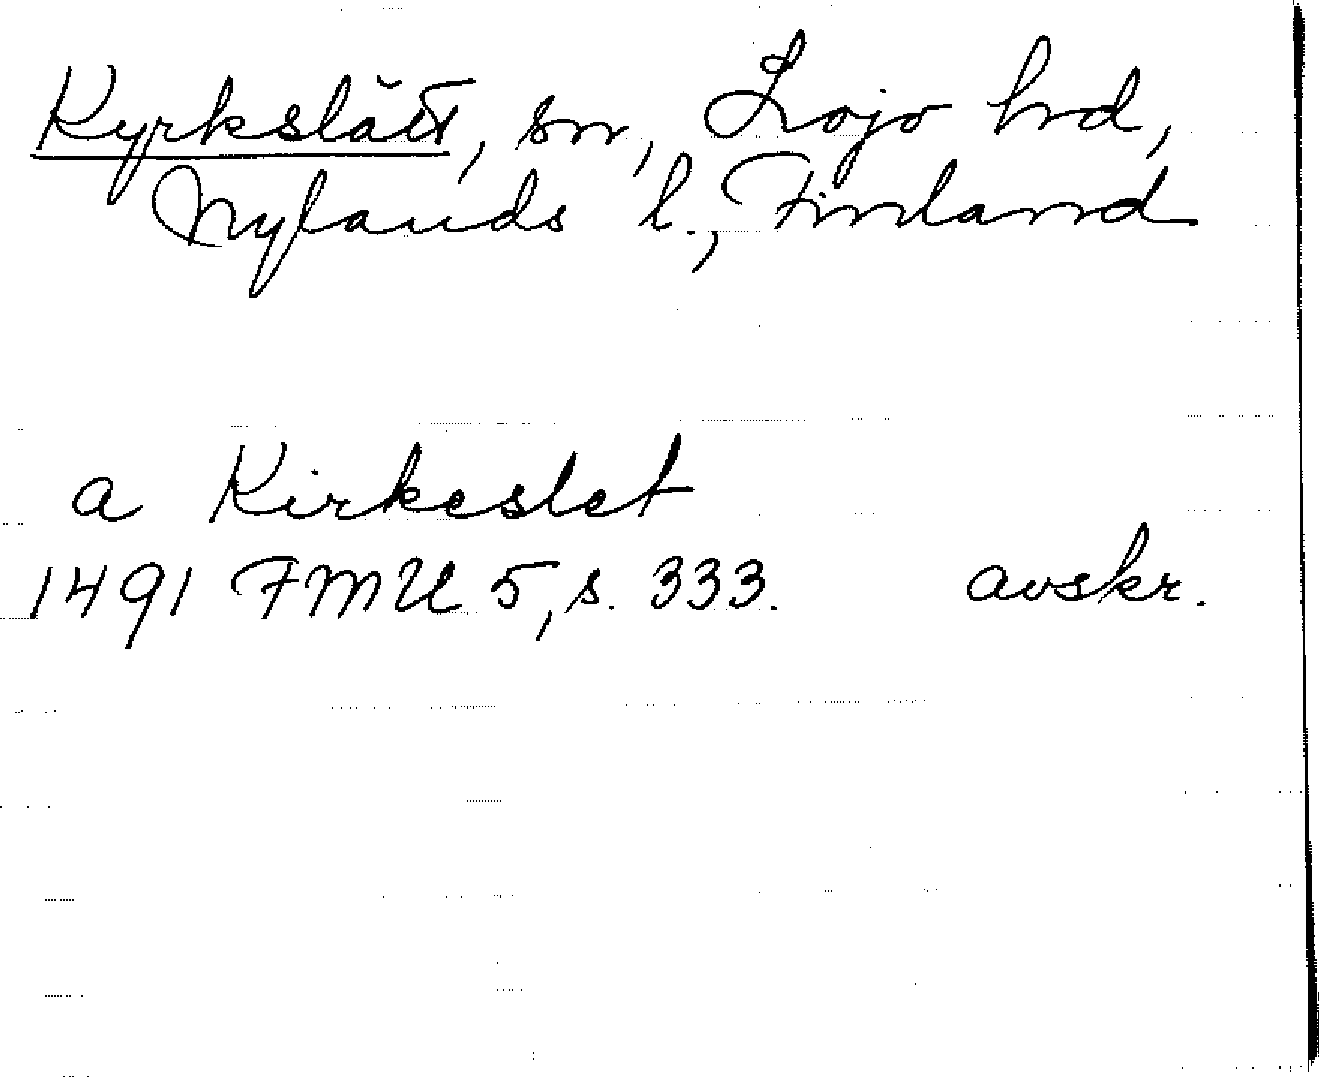 Kyrkslätt, sn, Lojo hrd,
Nylands l., Finland
a Kirkeslet
1491 FMU 5, s. 333. avskr.